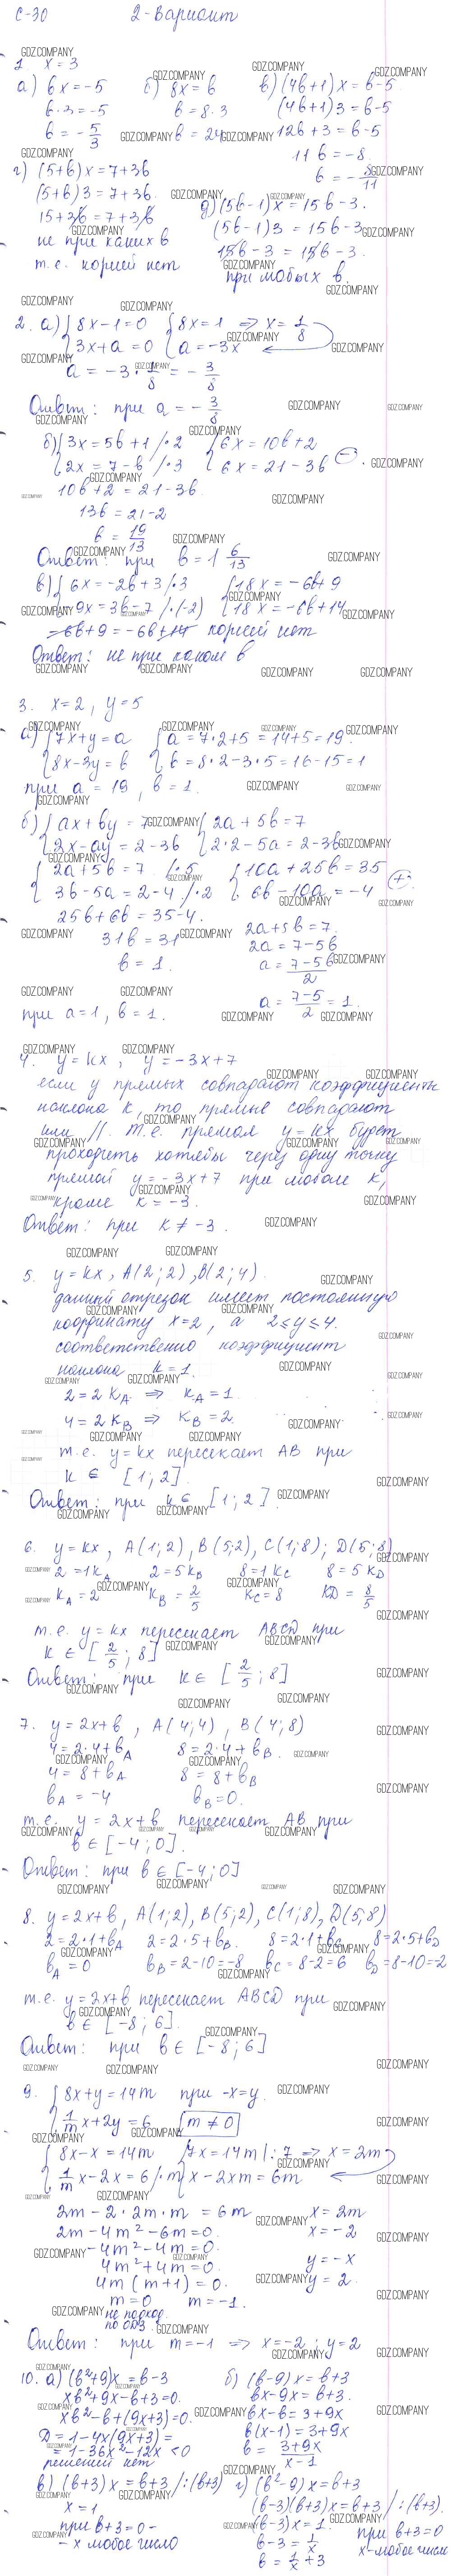 С-30 2-Вариант
1. x = 3
а) bx = -5 б) 8x = b в) (4b+1)x = b-5
b·3 = -5 b = 8·3 (4b+1)3 = b-5
b = -5/3 b = 24 12b+3 = b-5
11b = -8
b = -8/11
г) (5+b)x = 7+3b
(5+b)3 = 7+3b
15+3b = 7+3b
не при каких b
т.е. корней нет
д) (5b-1)x = 15b-3
(5b-1)3 = 15b-3
15b-3 = 15b-3
при любых b.
2. а) { 8x-1=0 { 8x=1 => x=1/8
{ 3x+a=0 { a=-3x
a = -3·1/8 = -3/8
Ответ: при a = -3/8
б) { 3x = 5b+1 /·2 { 6x = 10b+2
{ 2x = 7-b /·3 { 6x = 21-3b (-)
10b+2 = 21-3b
13b = 21-2
b = 19/13
Ответ: при b = 1 6/13
в) { 6x = -2b+3 /·3 { 18x = -6b+9
{ -9x = 3b-7 /·(-2) { 18x = -6b+14
-6b+9 = -6b+14 корней нет
Ответ: не при каком b
3. x=2, y=5
а) { 7x+y=a { a=7·2+5=14+5=19
{ 8x-3y=b { b=8·2-3·5=16-15=1
при a=19, b=1.
б) { ax+by=7 { 2a+5b=7
{ 2x-ay=2-3b { 2·2-5a=2-3b
{ 2a+5b=7 /·5 { 10a+25b=35
{ 3b-5a=2-4 /·2 { 6b-10a=-4 (+)
25b+6b=35-4
31b=31 2a+5b=7
b=1. 2a=7-5b
a=(7-5b)/2
a=(7-5)/2=1.
при a=1, b=1.
4. y=kx, y=-3x+7
если у прямых совпадают коэффициенты
наклона k, то прямые совпадают
или //. т.е. прямая y=kx будет
проходить хотябы через одну точку
прямой y=-3x+7 при любом k,
кроме k=-3.
Ответ: при k≠-3.
5. y=kx, A(2;2), B(2;4).
данный отрезок имеет постоянную
координату x=2, а 2≤y≤4.
соответственно коэффициент
наклона k=1.
2=2kA => kA=1.
4=2kB => kB=2.
т.е. y=kx пересекает AB при
k ∈ [1;2].
Ответ: при k∈ [1;2].
6. y=kx, A(1;2), B(5;2), C(1;8); D(5;8)
2=1kA 2=5kB 8=1kC 8=5kD
kA=2 kB=2/5 kC=8 kD=8/5
т.е. y=kx пересекает ABCD при
k∈[2/5;8]
Ответ: при k∈[2/5;8]
7. y=2x+b, A(4;4), B(4;8)
4=2·4+bA 8=2·4+bB.
4=8+bA 8=8+bB
bA=-4 bB=0.
т.е. y=2x+b пересекает AB при
b∈[-4;0].
Ответ: при b∈[-4;0]
8. y=2x+b, A(1;2), B(5;2), C(1;8), D(5;8)
2=2·1+bA 2=2·5+bB. 8=2·1+bC 8=2·5+bD
bA=0 bB=2-10=-8 bC=8-2=6 bD=8-10=-2
т.е. y=2x+b пересекает ABCD при
b∈[-8;6].
Ответ: при b∈[-8;6]
9. { 8x+y=14m при -x=y.
{ 1/m x+2y=6 m≠0
{ 8x-x=14m { 7x=14m |:7 => x=2m
{ 1/m x-2x=6 /·m { x-2xm=6m
2m-2·2m·m=6m x=2m
2m-4m²-6m=0. x=-2
-4m²-4m=0. y=-x
4m²+4m=0. y=2.
4m(m+1)=0.
m=0 m=-1.
не подход.
по ОДЗ.
Ответ: при m=-1 => x=-2; y=2
10. а) (b²+9)x=b-3 б) (b-9)x=b+3
xb²+9x-b+3=0. bx-9x=b+3.
xb²-b+(9x+3)=0. bx-b=3+9x
D=1-4x(9x+3)= b(x-1)=3+9x
=1-36x²-12x<0 b=(3+9x)/(x-1)
решений нет
в) (b+3)x=b+3 /:(b+3) г) (b²-9)x=b+3
x=1 (b-3)(b+3)x=b+3 /:(b+3).
при b+3=0- (b-3)x=1. при b+3=0
-x любое число b-3=1/x x-любое число
b=1/x+3
GDZ.COMPANY